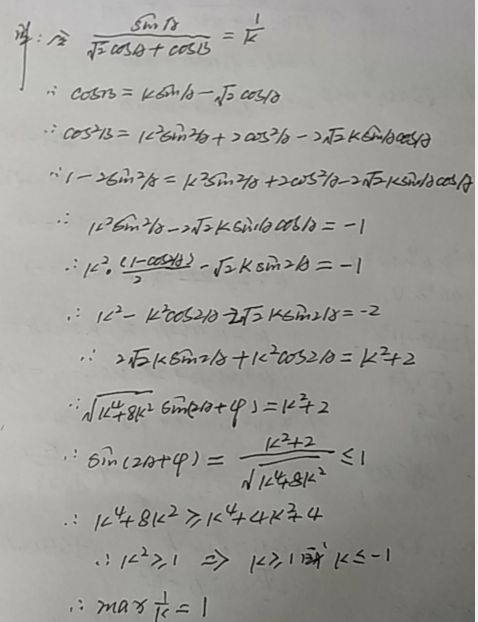 解:令 sinA/(√2cosA+cosB) = 1/k
∴ cosB = ksinA - √2cosA
∴ cos²B = k²sin²A + 2cos²A - 2√2ksinAcosA
∴ 1-2sin²A = k²sin²A + 2cos²A - 2√2ksinAcosA
∴ k²sin²A - 2√2ksinAcosA = -1
∴ k²·(1-cos2A)/2 - √2ksin2A = -1
∴ k² - k²cos2A - 2√2ksin2A = -2
∴ 2√2ksin2A + k²cos2A = k²+2
∴ √(k⁴+8k²) sin(2A+φ) = k²+2
∴ sin(2A+φ) = (k²+2)/√(k⁴+8k²) ≤ 1
∴ k⁴+8k² ≥ k⁴+4k²+4
∴ k² ≥ 1 ⇒ k≥1或 k≤-1
∴ max 1/k = 1